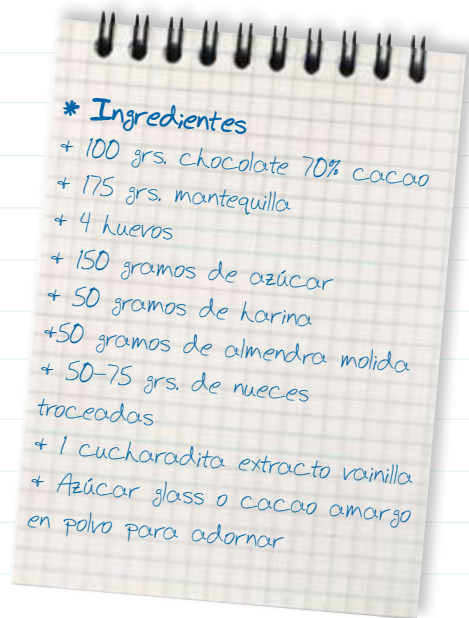 * Ingredientes
+ 100 grs. chocolate 70% cacao
+ 175 grs. mantequilla
+ 4 huevos
+ 150 gramos de azúcar
+ 50 gramos de harina
+50 gramos de almendra molida
+ 50-75 grs. de nueces
troceadas
+ 1 cucharadita extracto vainilla
+ Azúcar glass o cacao amargo
en polvo para adornar